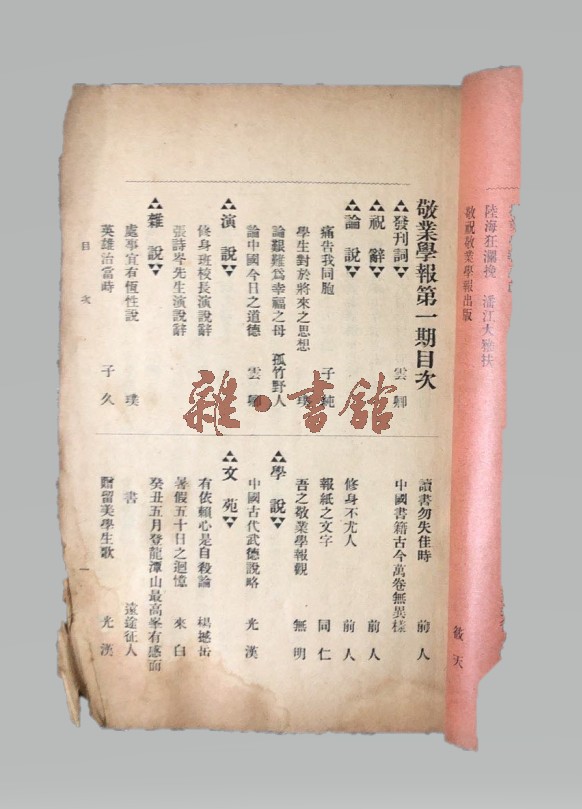 陸海狂瀾挽 潘江大雅扶
敬祝敬業學報出版
筱天
敬業學報第一期目次
發刊詞 雲卿
祝辭
論說
痛告我同胞 子純
學生對於將來之思想 璞
論艱難爲幸福之母 孤竹野人
論中國今日之道德 雲卿
演說
修身班校長演說辭
張詩岑先生演說辭
雜說
處事宜有恆性說 璞
英雄治當時 子久
讀書勿失佳時 前人
中國書籍古今萬卷無異樣
修身不尤人 前人
報紙之文字 同仁
吾之敬業學報觀 無明
學說
中國古代武德說略 光漢
文苑
有依賴心是自殺論 楊撼岳
暑假五十日之迴憶 來白
癸丑五月登龍潭山最高峯有感而
書 遠途征人
贈留美學生歌 光漢
目次 一
雜·書館